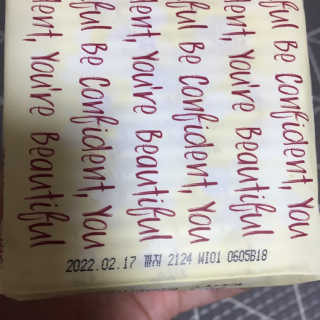 ful Be Confident, You
dent, You're Beautiful
ful Be Confident, You
dent, You're Beautiful
ful Be Confident, You
dent, You're Beautiful
2022.02.17 까지 2124 WI01 0605B18